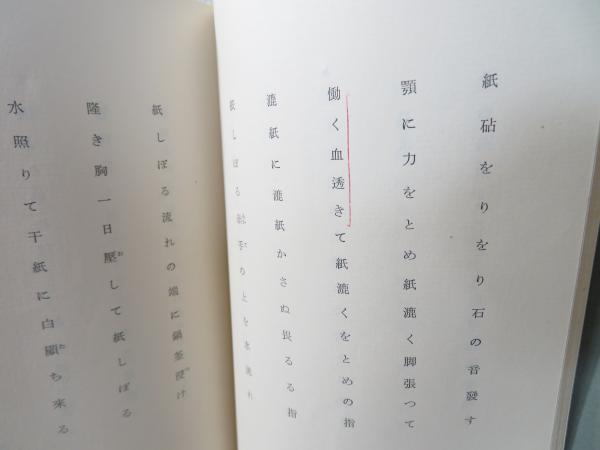 紙砧をりをり石の音發す
顎に力をとめ紙漉く脚張つて
働く血透きて紙漉くをとめの指
漉紙に漉紙かさぬ畏るる指
紙しぼる の上を水流れ
紙しぼる流れの端に鍋釜浸け
隆き胸一日壓して紙しぼる
水照りて干紙に白顯ち來る